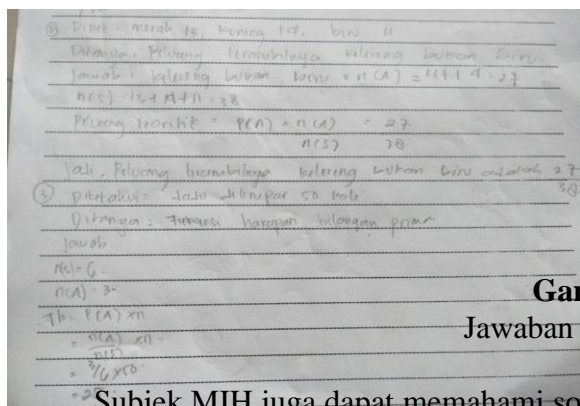 ② Diket : merah 13, kuning 14, biru 11
Ditanya : Peluang terambilnya kelereng bukan biru
Jawab : kelereng bukan biru = n(A) = 13 + 14 = 27
n(S) = 13 + 14 + 11 = 38
Peluang teoritik = P(A) = n(A) = 27
n(S) 38
Jadi, Peluang terambilnya kelereng bukan biru adalah 27
38
③ Diketahui : dadu dilempar 50 kali
Ditanya : Frekuensi harapan bilangan prima
Jawab
n(s) = 6
n(A) = 3
Fh = P(A) xn
= n(A) xn
n(S)
= 3/6 x 50
= 25
Gar
Jawaban
Subjek MIH juga dapat memahami so